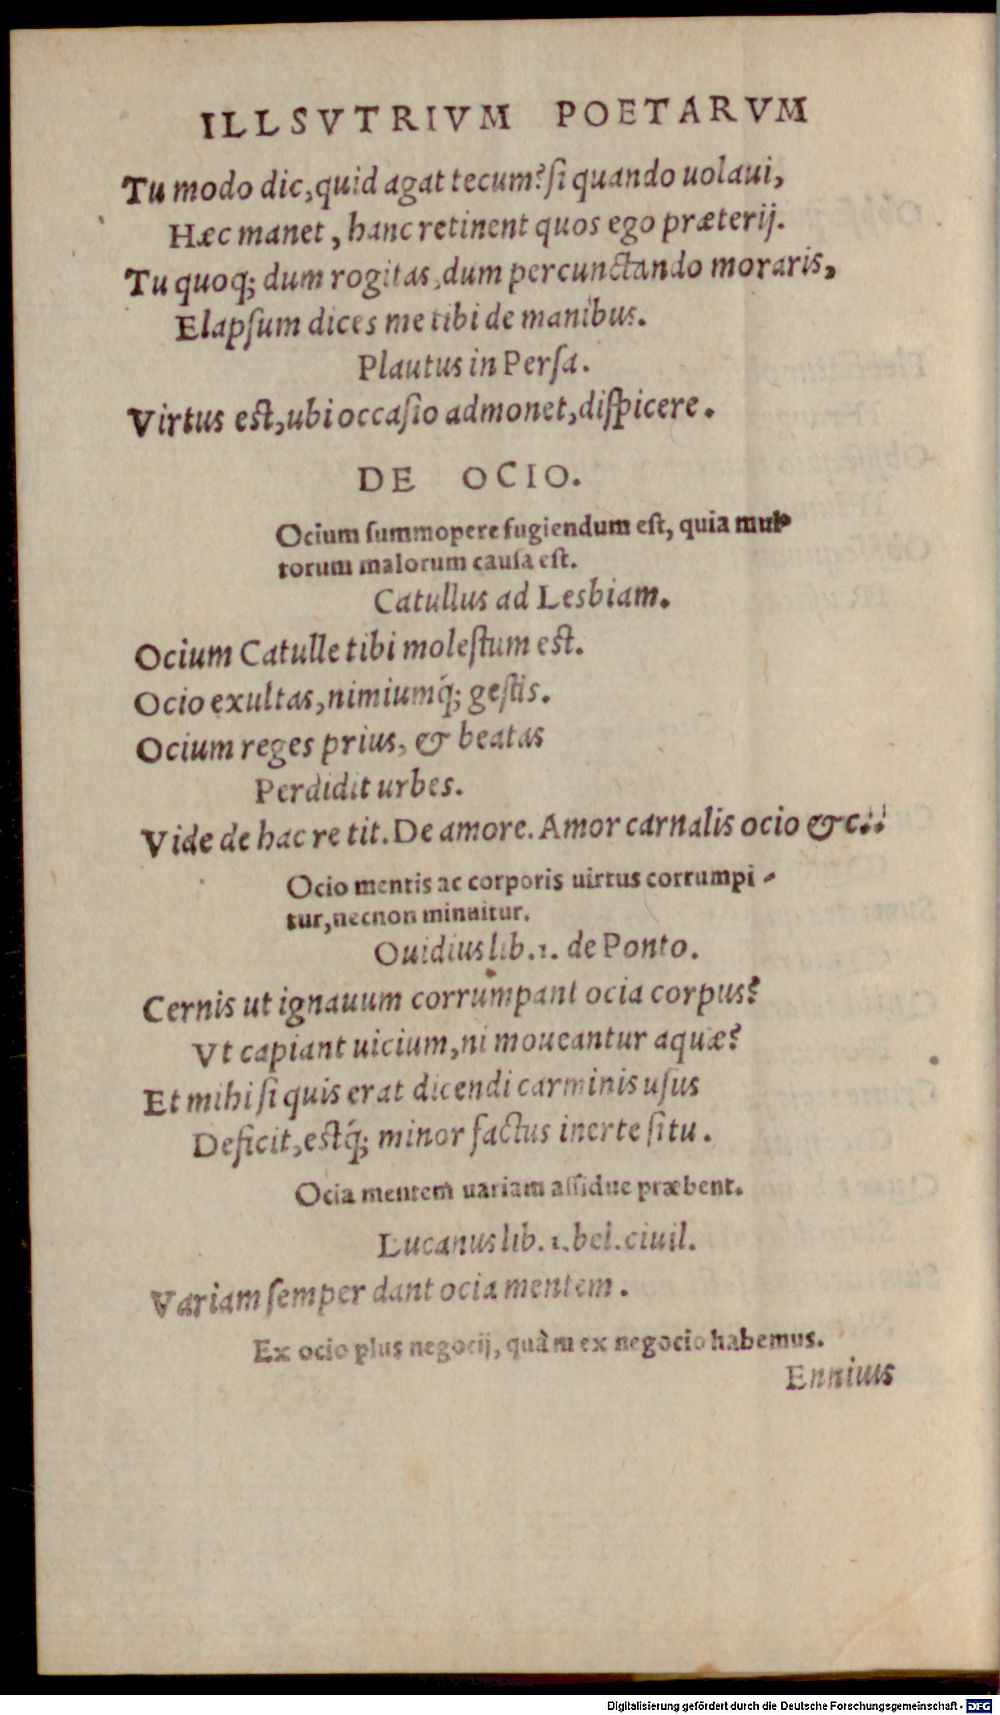 ILLSVTRIVM POETARVM
Tu modo dic, quid agat tecum? si quando uolaui,
Hæc manet, hanc retinent quos ego præterij.
Tu quoq; dum rogitas, dum percunctando moraris,
Elapsum dices me tibi de manibus.
Plautus in Persa.
Virtus est, ubi occasio admonet, dispicere.
DE OCIO.
Ocium summopere fugiendum est, quia mul-
torum malorum causa est.
Catullus ad Lesbiam.
Ocium Catulle tibi molestum est.
Ocio exultas, nimiumq́; gestis.
Ocium reges prius, & beatas
Perdidit urbes.
Vide de hac re tit. De amore. Amor carnalis ocio &c.
Ocio mentis ac corporis uirtus corrumpi-
tur, necnon minuitur.
Ouidius lib. 1. de Ponto.
Cernis ut ignauum corrumpant ocia corpus?
Vt capiant uicium, ni moueantur aquæ?
Et mihi si quis erat dicendi carminis usus
Deficit, estq́; minor factus inerte situ.
Ocia mentem uariam assidue præbent.
Lucanus lib. 1. bel. ciuil.
Variam semper dant ocia mentem.
Ex ocio plus negocij, quàm ex negocio habemus.
Ennius
Digitalisierung gefördert durch die Deutsche Forschungsgemeinschaft - DFG